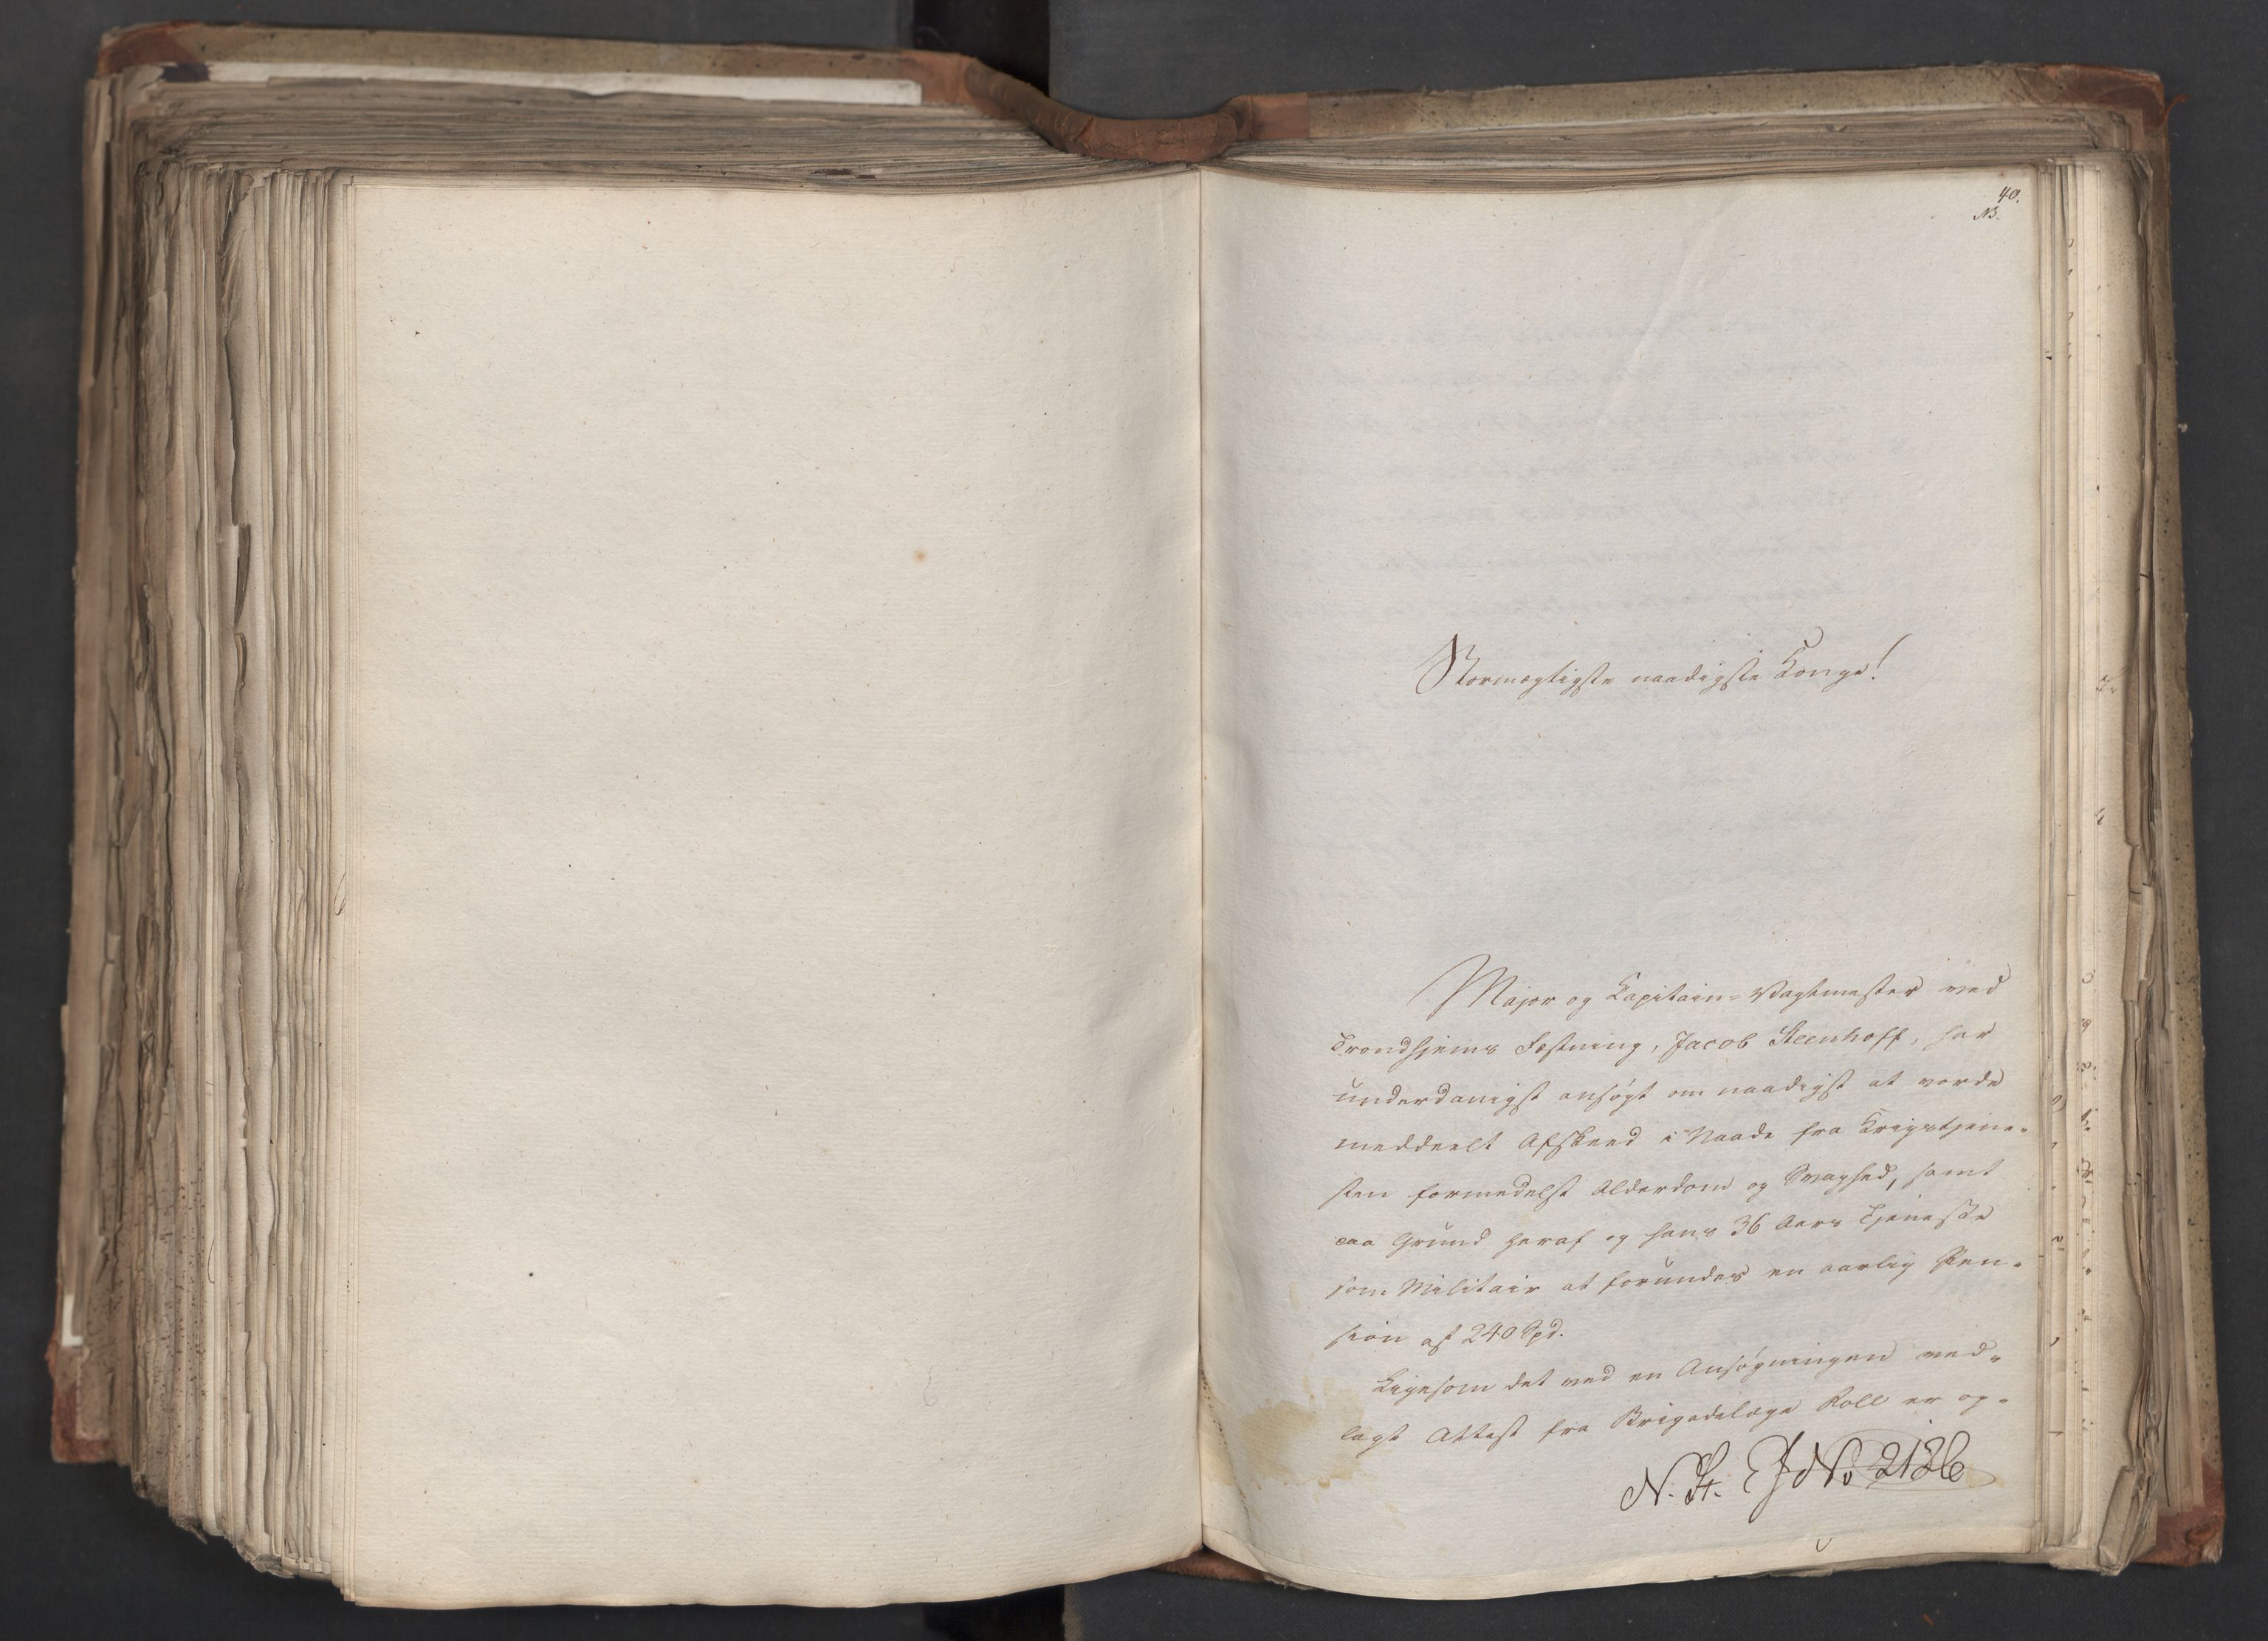 40.
NB.
Stormægtigste naadigste Konge!
Major og Kapitain-Vagtmester ved
Trondhjems Fæstning, Jacob Steenhoff, har
underdanigst ansøgt om naadigst at vorde
meddeelt Afskeed i Naade fra Krigstjene-
sten formedelst Alderdom og Svaghed, samt
paa Grund heraf og hans 36 Aars Tjeneste
som Militair at forundes en aarlig Pen-
sion af 240 Spd.
Ligesom det ved en Ansøgningen ved-
lagt Attest fra Brigadelæge Roll er op-
N. St. J No 2126